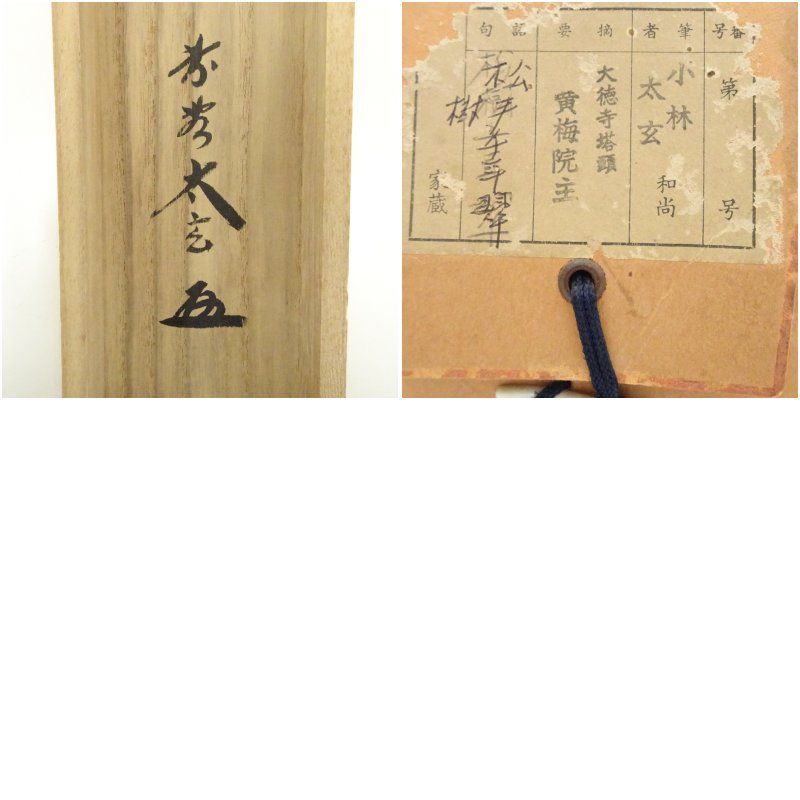 紫野太玄
番号
第 号
筆者
小林太玄 和尚
摘要
大徳寺塔頭
黄梅院主
語句
松樹千年翠
家蔵